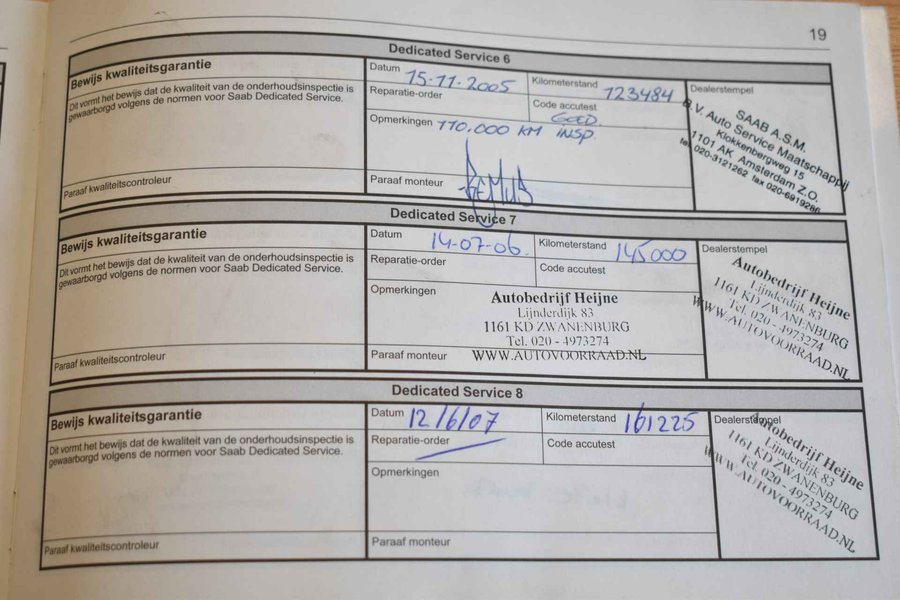 19
Dedicated Service 6
Bewijs kwaliteitsgarantie
Dit vormt het bewijs dat de kwaliteit van de onderhoudsinspectie is
gewaarborgd volgens de normen voor Saab Dedicated Service.
Paraaf kwaliteitscontroleur
Datum 15-11-2005
Kilometerstand 123484
Reparatie-order
Code accutest GOED
Opmerkingen 110.000 KM INSP.
Paraaf monteur
Dealerstempel
SAAB A.S.M.
B.V. Auto Service Maatschappij
Klokkenbergweg 15
1101 AK Amsterdam Z.O.
tel. 020-3121262 fax 020-6919286
Dedicated Service 7
Bewijs kwaliteitsgarantie
Dit vormt het bewijs dat de kwaliteit van de onderhoudsinspectie is
gewaarborgd volgens de normen voor Saab Dedicated Service.
Paraaf kwaliteitscontroleur
Datum 14-07-06.
Kilometerstand 145000
Reparatie-order
Code accutest
Opmerkingen
Autobedrijf Heijne
Lijnderdijk 83
1161 KD ZWANENBURG
Tel. 020 - 4973274
WWW.AUTOVOORRAAD.NL
Paraaf monteur
Dealerstempel
Autobedrijf Heijne
Lijnderdijk 83
1161 KD ZWANENBURG
Tel. 020 - 4973274
WWW.AUTOVOORRAAD.NL
Dedicated Service 8
Bewijs kwaliteitsgarantie
Dit vormt het bewijs dat de kwaliteit van de onderhoudsinspectie is
gewaarborgd volgens de normen voor Saab Dedicated Service.
Paraaf kwaliteitscontroleur
Datum 12/6/07
Kilometerstand 161225
Reparatie-order
Code accutest
Opmerkingen
Paraaf monteur
Dealerstempel
Autobedrijf Heijne
Lijnderdijk 83
1161 KD ZWANENBURG
Tel. 020 - 4973274
WWW.AUTOVOORRAAD.NL